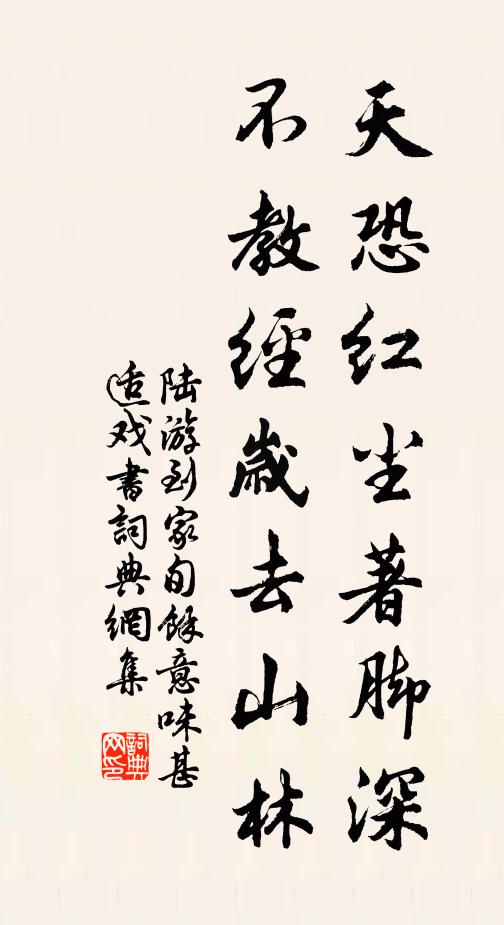 天恐红尘著脚深
不教經歲去山林
陆游到家旬餘意味甚
适戏書詞典網集
詞典
网印